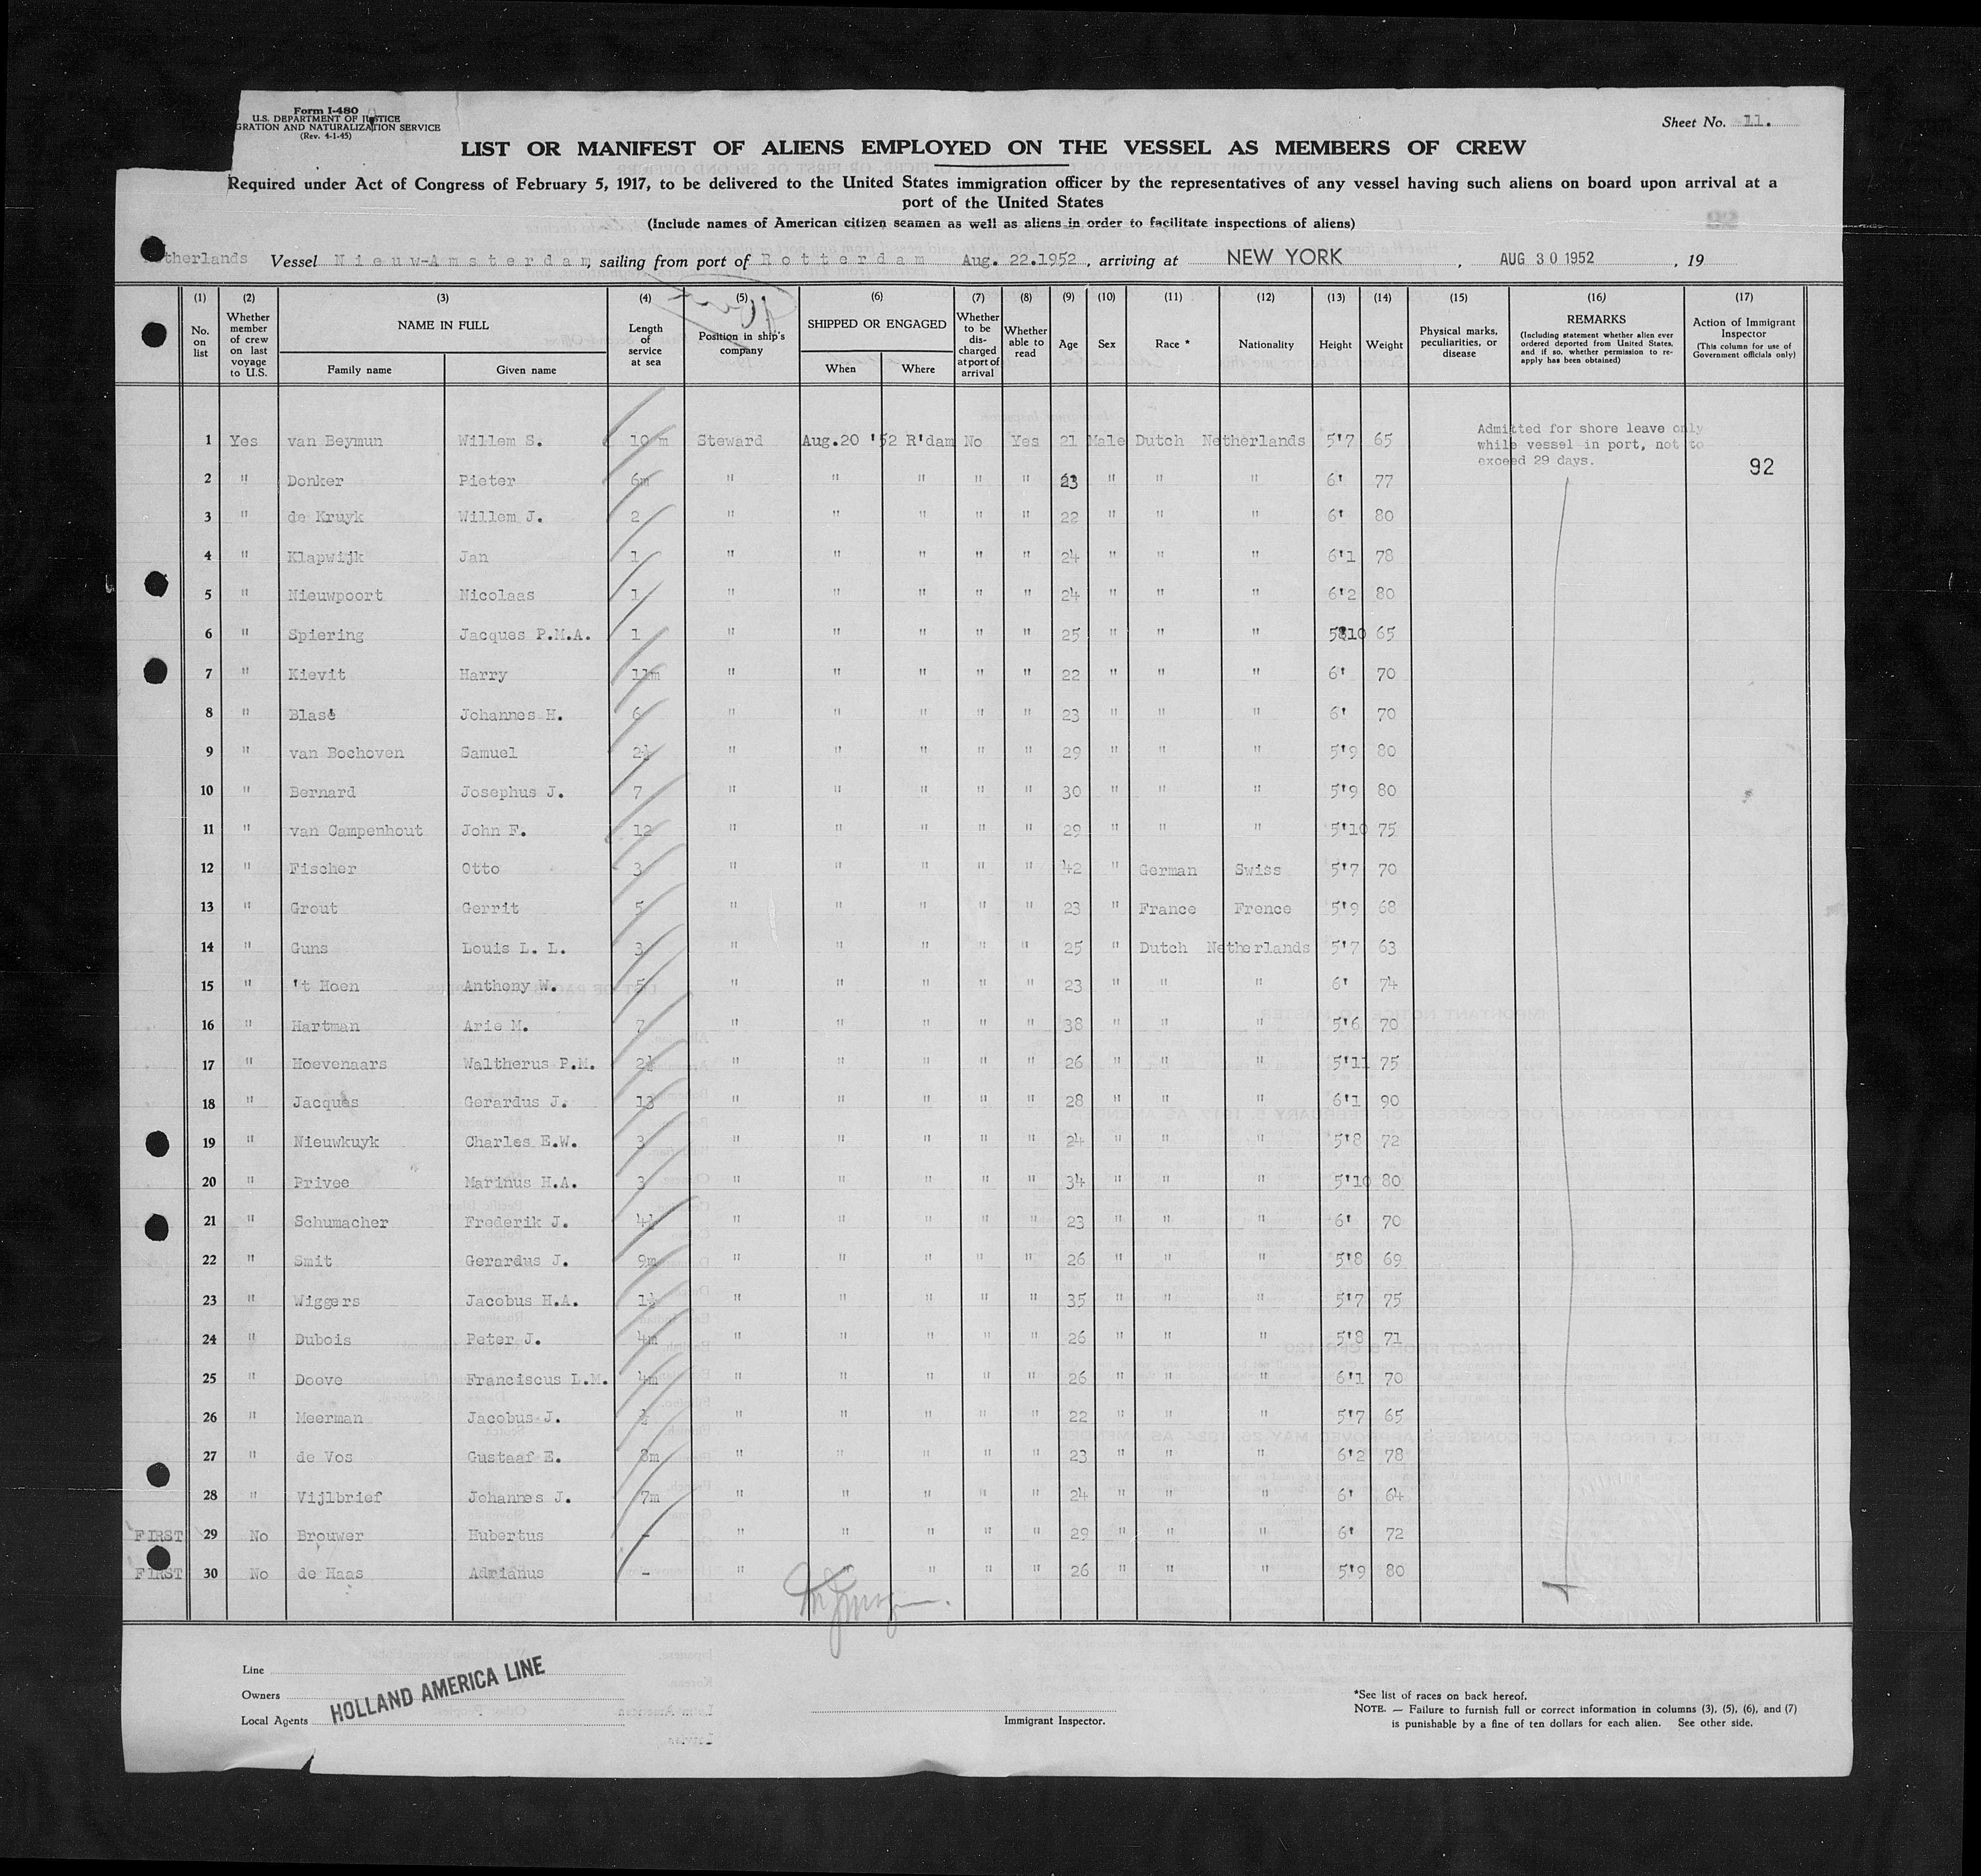 Form I-480
U.S. DEPARTMENT OF JUSTICE
GRATION AND NATURALIZATION SERVICE
(Rev. 4-1-45)
Sheet No. 11.
LIST OR MANIFEST OF ALIENS EMPLOYED ON THE VESSEL AS MEMBERS OF CREW
Required under Act of Congress of February 5, 1917, to be delivered to the United States immigration officer by the representatives of any vessel having such aliens on board upon arrival at a
port of the United States
(Include names of American citizen seamen as well as aliens in order to facilitate inspections of aliens)
therlands Vessel Nieuw-Amsterdam, sailing from port of Rotterdam Aug. 22.1952, arriving at NEW YORK, AUG 30 1952, 19
(1) (2) (3) (4) (5) (6) (7) (8) (9) (10) (11) (12) (13) (14) (15) (16) (17)
No. on list
Whether member of crew on last voyage to U.S.
NAME IN FULL
Family name
Given name
Length of service at sea
Position in ship's company
SHIPPED OR ENGAGED
When
Where
Whether to be discharged at port of arrival
Whether able to read
Age
Sex
Race *
Nationality
Height
Weight
Physical marks, peculiarities, or disease
REMARKS
(Including statement whether alien ever ordered deported from United States, and if so, whether permission to re-apply has been obtained)
Action of Immigrant Inspector
(This column for use of Government officials only)
1 Yes van Beymun Willem S. 10 m Steward Aug.20 '52 R'dam No Yes 21 Male Dutch Netherlands 5'7 65
Admitted for shore leave only
while vessel in port, not to
exceed 29 days.
92
2 " Donker Pieter 6m " " " " " 23 " " " 6' 77
3 " de Kruyk Willem J. 2 " " " " " 22 " " " 6' 80
4 " Klapwijk Jan 1 " " " " " 24 " " " 6'1 78
5 " Nieuwpoort Nicolaas 1 " " " " " 24 " " " 6'2 80
6 " Spiering Jacques P.M.A. 1 " " " " " 25 " " " 5'10 65
7 " Kievit Harry 11m " " " " " 22 " " " 6' 70
8 " Blasé Johannes H. 6 " " " " " 23 " " " 6' 70
9 " van Bochoven Samuel 2½ " " " " " 29 " " " 5'9 80
10 " Bernard Josephus J. 7 " " " " " 30 " " " 5'9 80
11 " van Campenhout John F. 12 " " " " " 29 " " " 5'10 75
12 " Fischer Otto 3 " " " " " 42 " German Swiss 5'7 70
13 " Grout Gerrit 5 " " " " " 23 " France Frence 5'9 68
14 " Guns Louis L. L. 3 " " " " " 25 " Dutch Netherlands 5'7 63
15 " 't Hoen Anthony W. 5 " " " " " 23 " " " 6' 74
16 " Hartman Arie M. 7 " " " " " 38 " " " 5'6 70
17 " Hoevenaars Waltherus P.M. 2½ " " " " " 26 " " " 5'11 75
18 " Jacques Gerardus J. 13 " " " " " 28 " " " 6'1 90
19 " Nieuwkuyk Charles E.W. 3 " " " " " 24 " " " 5'8 72
20 " Privee Marinus H.A. 3 " " " " " 34 " " " 5'10 80
21 " Schumacher Frederik J. 4½ " " " " " 23 " " " 6' 70
22 " Smit Gerardus J. 9m " " " " " 26 " " " 5'8 69
23 " Wiggers Jacobus H.A. 1½ " " " " " 35 " " " 5'7 75
24 " Dubois Peter J. 4m " " " " " 26 " " " 5'8 71
25 " Doove Franciscus L.M. 4m " " " " " 26 " " " 6'1 70
26 " Meerman Jacobus J. ½ " " " " " 22 " " " 5'7 65
27 " de Vos Gustaaf E. 8m " " " " " 23 " " " 6'2 78
28 " Vijlbrief Johannes J. 7m " " " " " 24 " " " 6' 64
FIRST 29 No Brouwer Hubertus - " " " " " 29 " " " 6' 72
FIRST 30 No de Haas Adrianus - " " " " 26 " " " 5'9 80
Line
Owners
Local Agents
HOLLAND AMERICA LINE
Immigrant Inspector.
*See list of races on back hereof.
NOTE. — Failure to furnish full or correct information in columns (3), (5), (6), and (7)
is punishable by a fine of ten dollars for each alien. See other side.